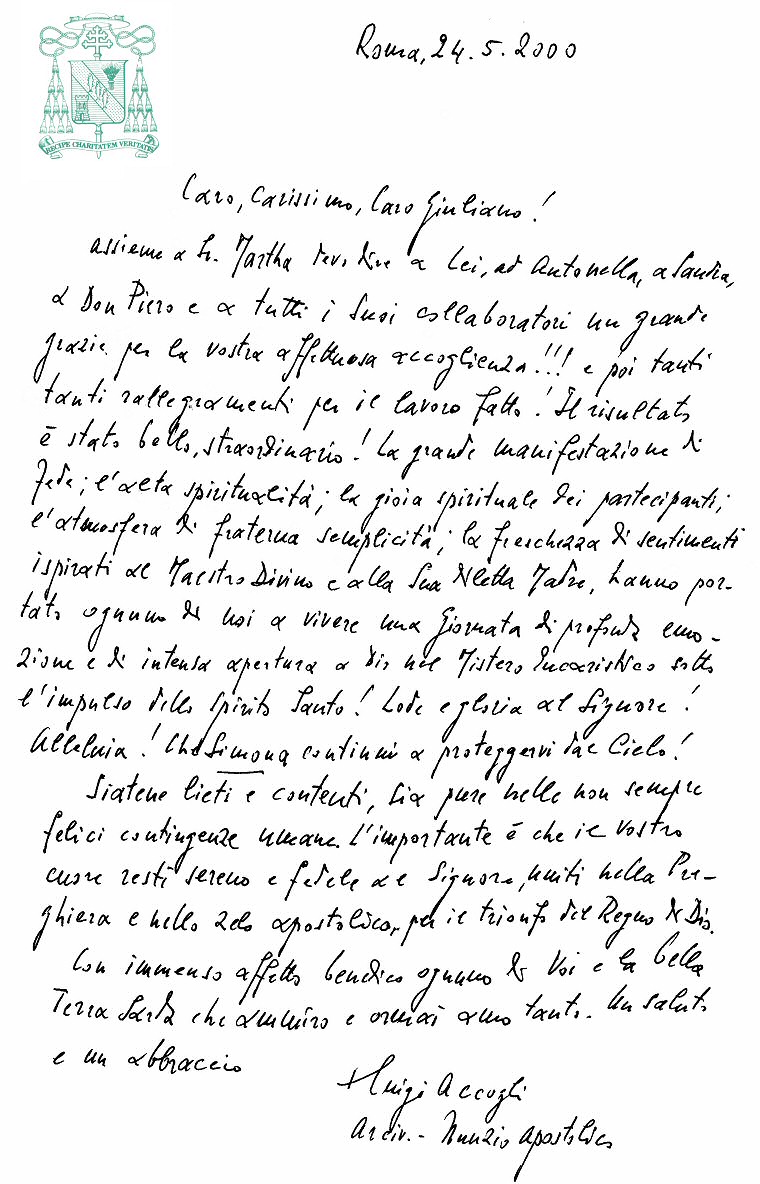 RECIPE CHARITATEM VERITATIS
Roma, 24.5.2000
Caro, Carissimo, Caro Giuliano!
assieme a Sr. Martha devo dire a Lei, ad Antonella, a Sandra,
a Don Piero e a tutti i Suoi collaboratori un grande
grazie per la vostra affettuosa accoglienza!!! e poi tanti
tanti rallegramenti per il lavoro fatto! Il risultato
è stato bello, straordinario! La grande manifestazione di
Fede; l'alta spiritualità; la gioia spirituale dei partecipanti;
l'atmosfera di fraterna semplicità; la freschezza di sentimenti
ispirati al Maestro Divino e alla Sua diletta Madre, hanno por-
tato ognuno di noi a vivere una Giornata di profonda emo-
zione e di intensa apertura a Dio nel Mistero Eucaristico sotto
l'impulso dello Spirito Santo! Lode e gloria al Signore!
Alleluia! Che Simona continui a proteggervi dal Cielo!
Siatene lieti e contenti, sia pure nelle non sempre
felici contingenze umane. L'importante è che il vostro
cuore resti sereno e fedele al Signore, uniti nella Pre-
ghiera e nello zelo apostolico, per il trionfo del Regno di Dio.
Con immenso affetto benedico ognuno di Voi e la bella
Terra Sarda che ammiro e ormai amo tanto. Un saluto
e un abbraccio
+Luigi Accogli
Arciv. - Nunzio Apostolico